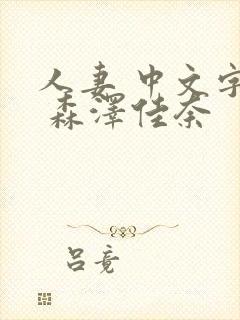 人妻 中文字
森澤佳奈
吕竟